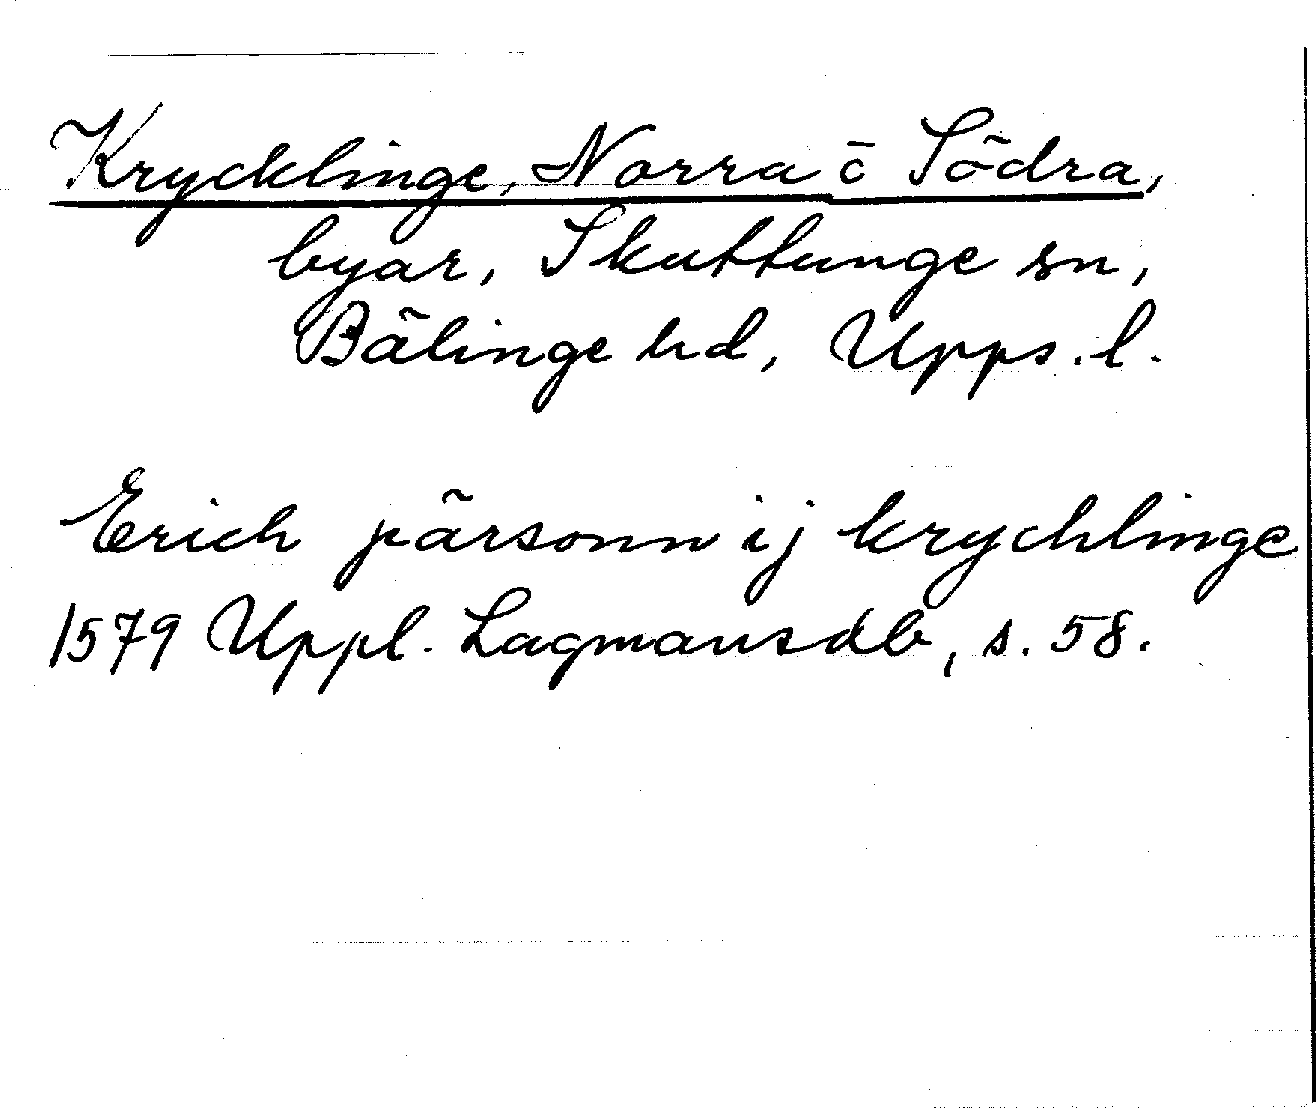 Krycklinge, Norra ō Södra,
byar, Skuttunge sn,
Bälinge hd, Upps. l.
Erich pärsonn ij krychlinge
1579 Uppl. Lagmansdb, s. 58.